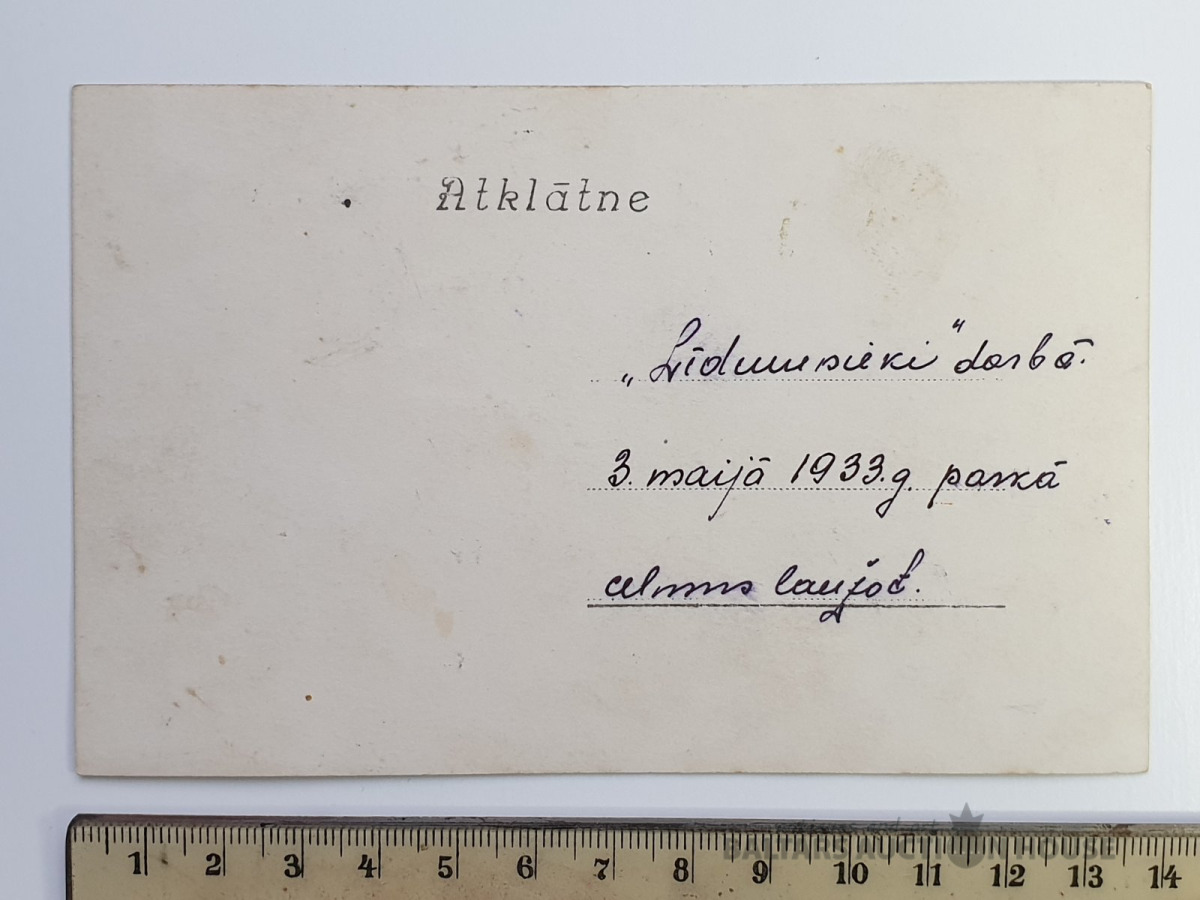 Atklātne
„Līdumnieki" darbā.
3. maijā 1933.g. parkā
celmus laužot.
1 2 3 4 5 6 7 8 9 10 11 12 13 14
BALTARS AUCTION HOUSE